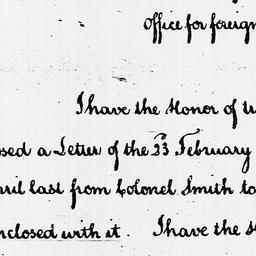 Office for foreign
I have the Honor of tr
osed a Letter of the 23 February
pril last from Colonel Smith to
nclosed with it. I have the H